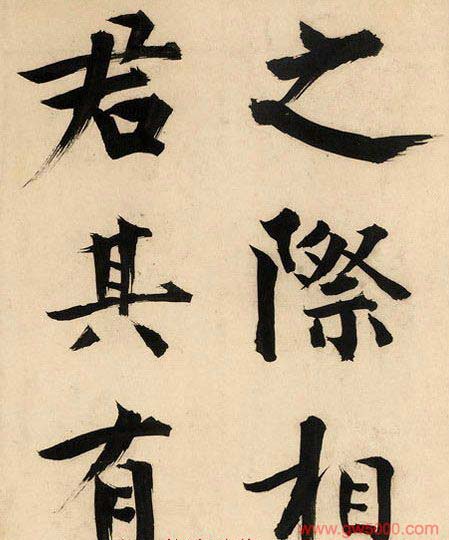 之際相
君其有
www.gw5000.com